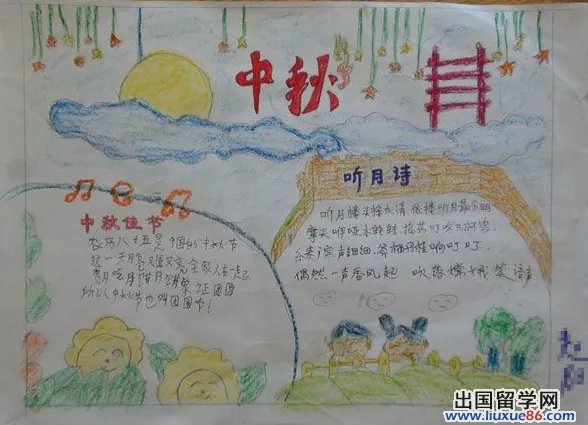 中秋
听月诗
听月楼头接太清 依楼听月最分明
摩天咿哑冰轮转 捣药叮咚玉杵鸣
乐奏广寒声细细 斧柯丹桂响叮叮
偶然一声香风起 吹落嫦娥笑语声
中秋佳节
农历八十五是中国的中秋节
这一天月亮又圆又亮 全家人在一起
赏月吃月饼 团圆
所以中秋节也叫团圆节!
出国留学网
www.liuxue86.com